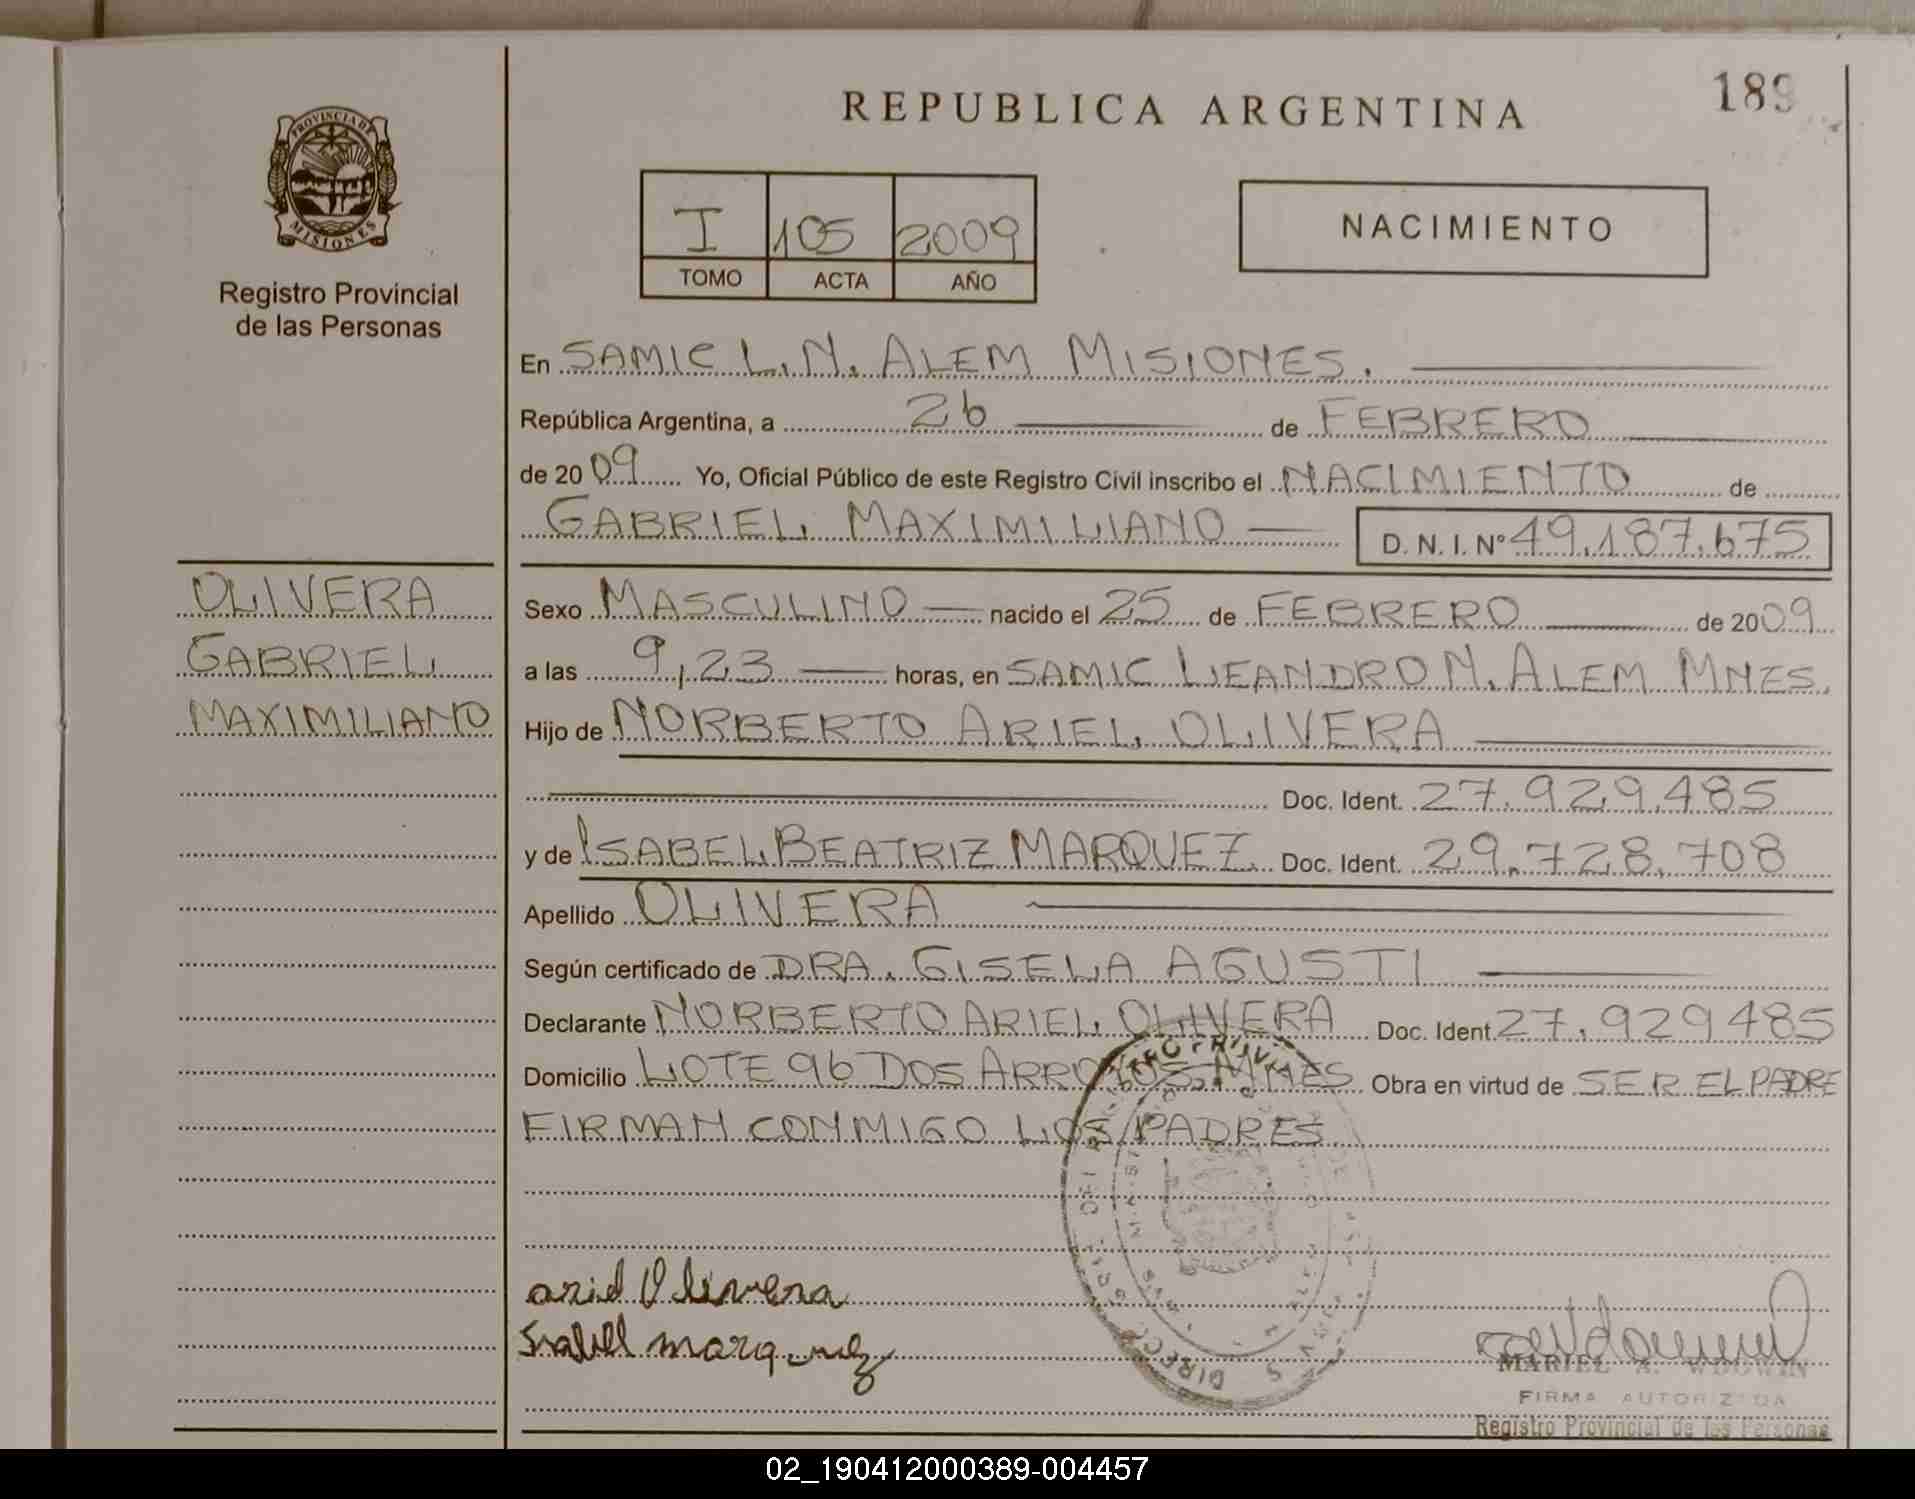 REPUBLICA ARGENTINA
189
PROVINCIA DE
MISIONES
Registro Provincial
de las Personas
I 105 2009
TOMO ACTA AÑO
NACIMIENTO
En SAMIC L. N. ALEM MISIONES.
República Argentina, a 26 de FEBRERO
de 2009 Yo, Oficial Público de este Registro Civil inscribo el NACIMIENTO de
GABRIEL MAXIMILIANO D. N. I. Nº 49.187.675
OLIVERA
GABRIEL
MAXIMILIANO
Sexo MASCULINO nacido el 25 de FEBRERO de 2009
a las 9,23 horas, en SAMIC LEANDRO N. ALEM MNES.
Hijo de NORBERTO ARIEL OLIVERA
Doc. Ident. 27.929.485
y de ISABEL BEATRIZ MARQUEZ. Doc. Ident. 29.728.708
Apellido OLIVERA
Según certificado de DRA. GISELA AGUSTI
Declarante NORBERTO ARIEL OLIVERA Doc. Ident. 27.929485
Domicilio LOTE 96 DOS ARROYOS. MNES Obra en virtud de SER EL PADRE
FIRMAN CONMIGO LOS PADRES
ariel Olivera
Isabel marquez
MARIEL
FIRMA AUTORIZADA
Registro Provincial de las Personas
02_190412000389-004457